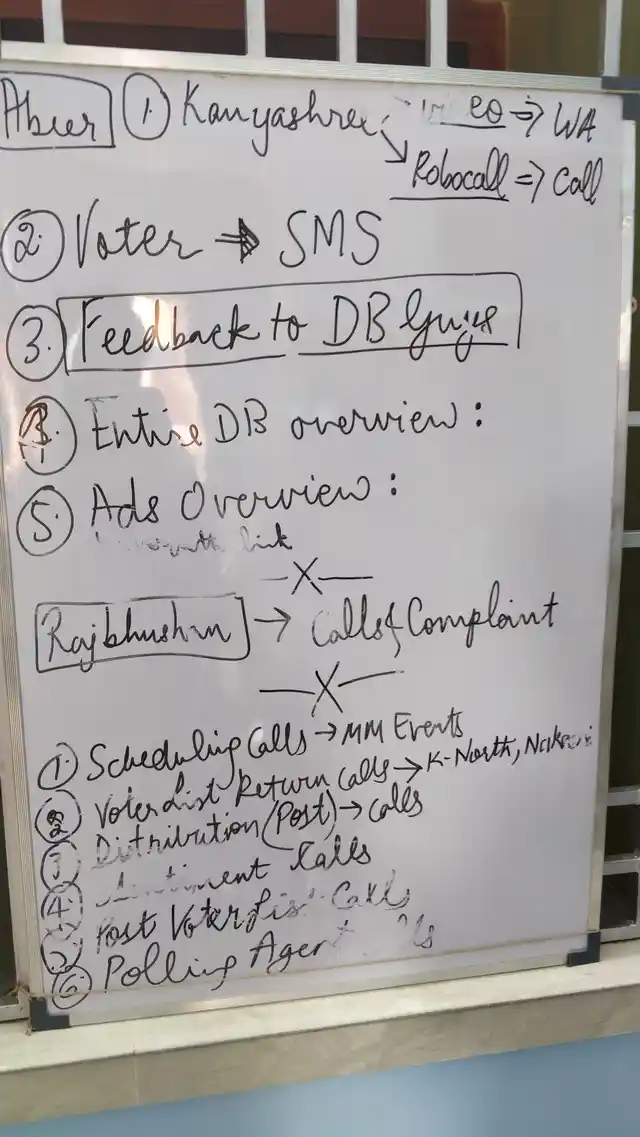 Abeer ① Kanyashree → WA
↘ Robocall ⇒ Call
② Voter → SMS
③ Feedback to DB Guys
④ Entire DB overview :
⑤ Ads Overview :
link
—X—
Rajbhushan → Calls & Complaint
—X—
① Scheduling Calls → MM Events
② Voter List Return Calls → K-North,
③ Distribution (Post) → Calls
④ Calls
⑤ Post Voter List Calls
⑥ Polling Agent